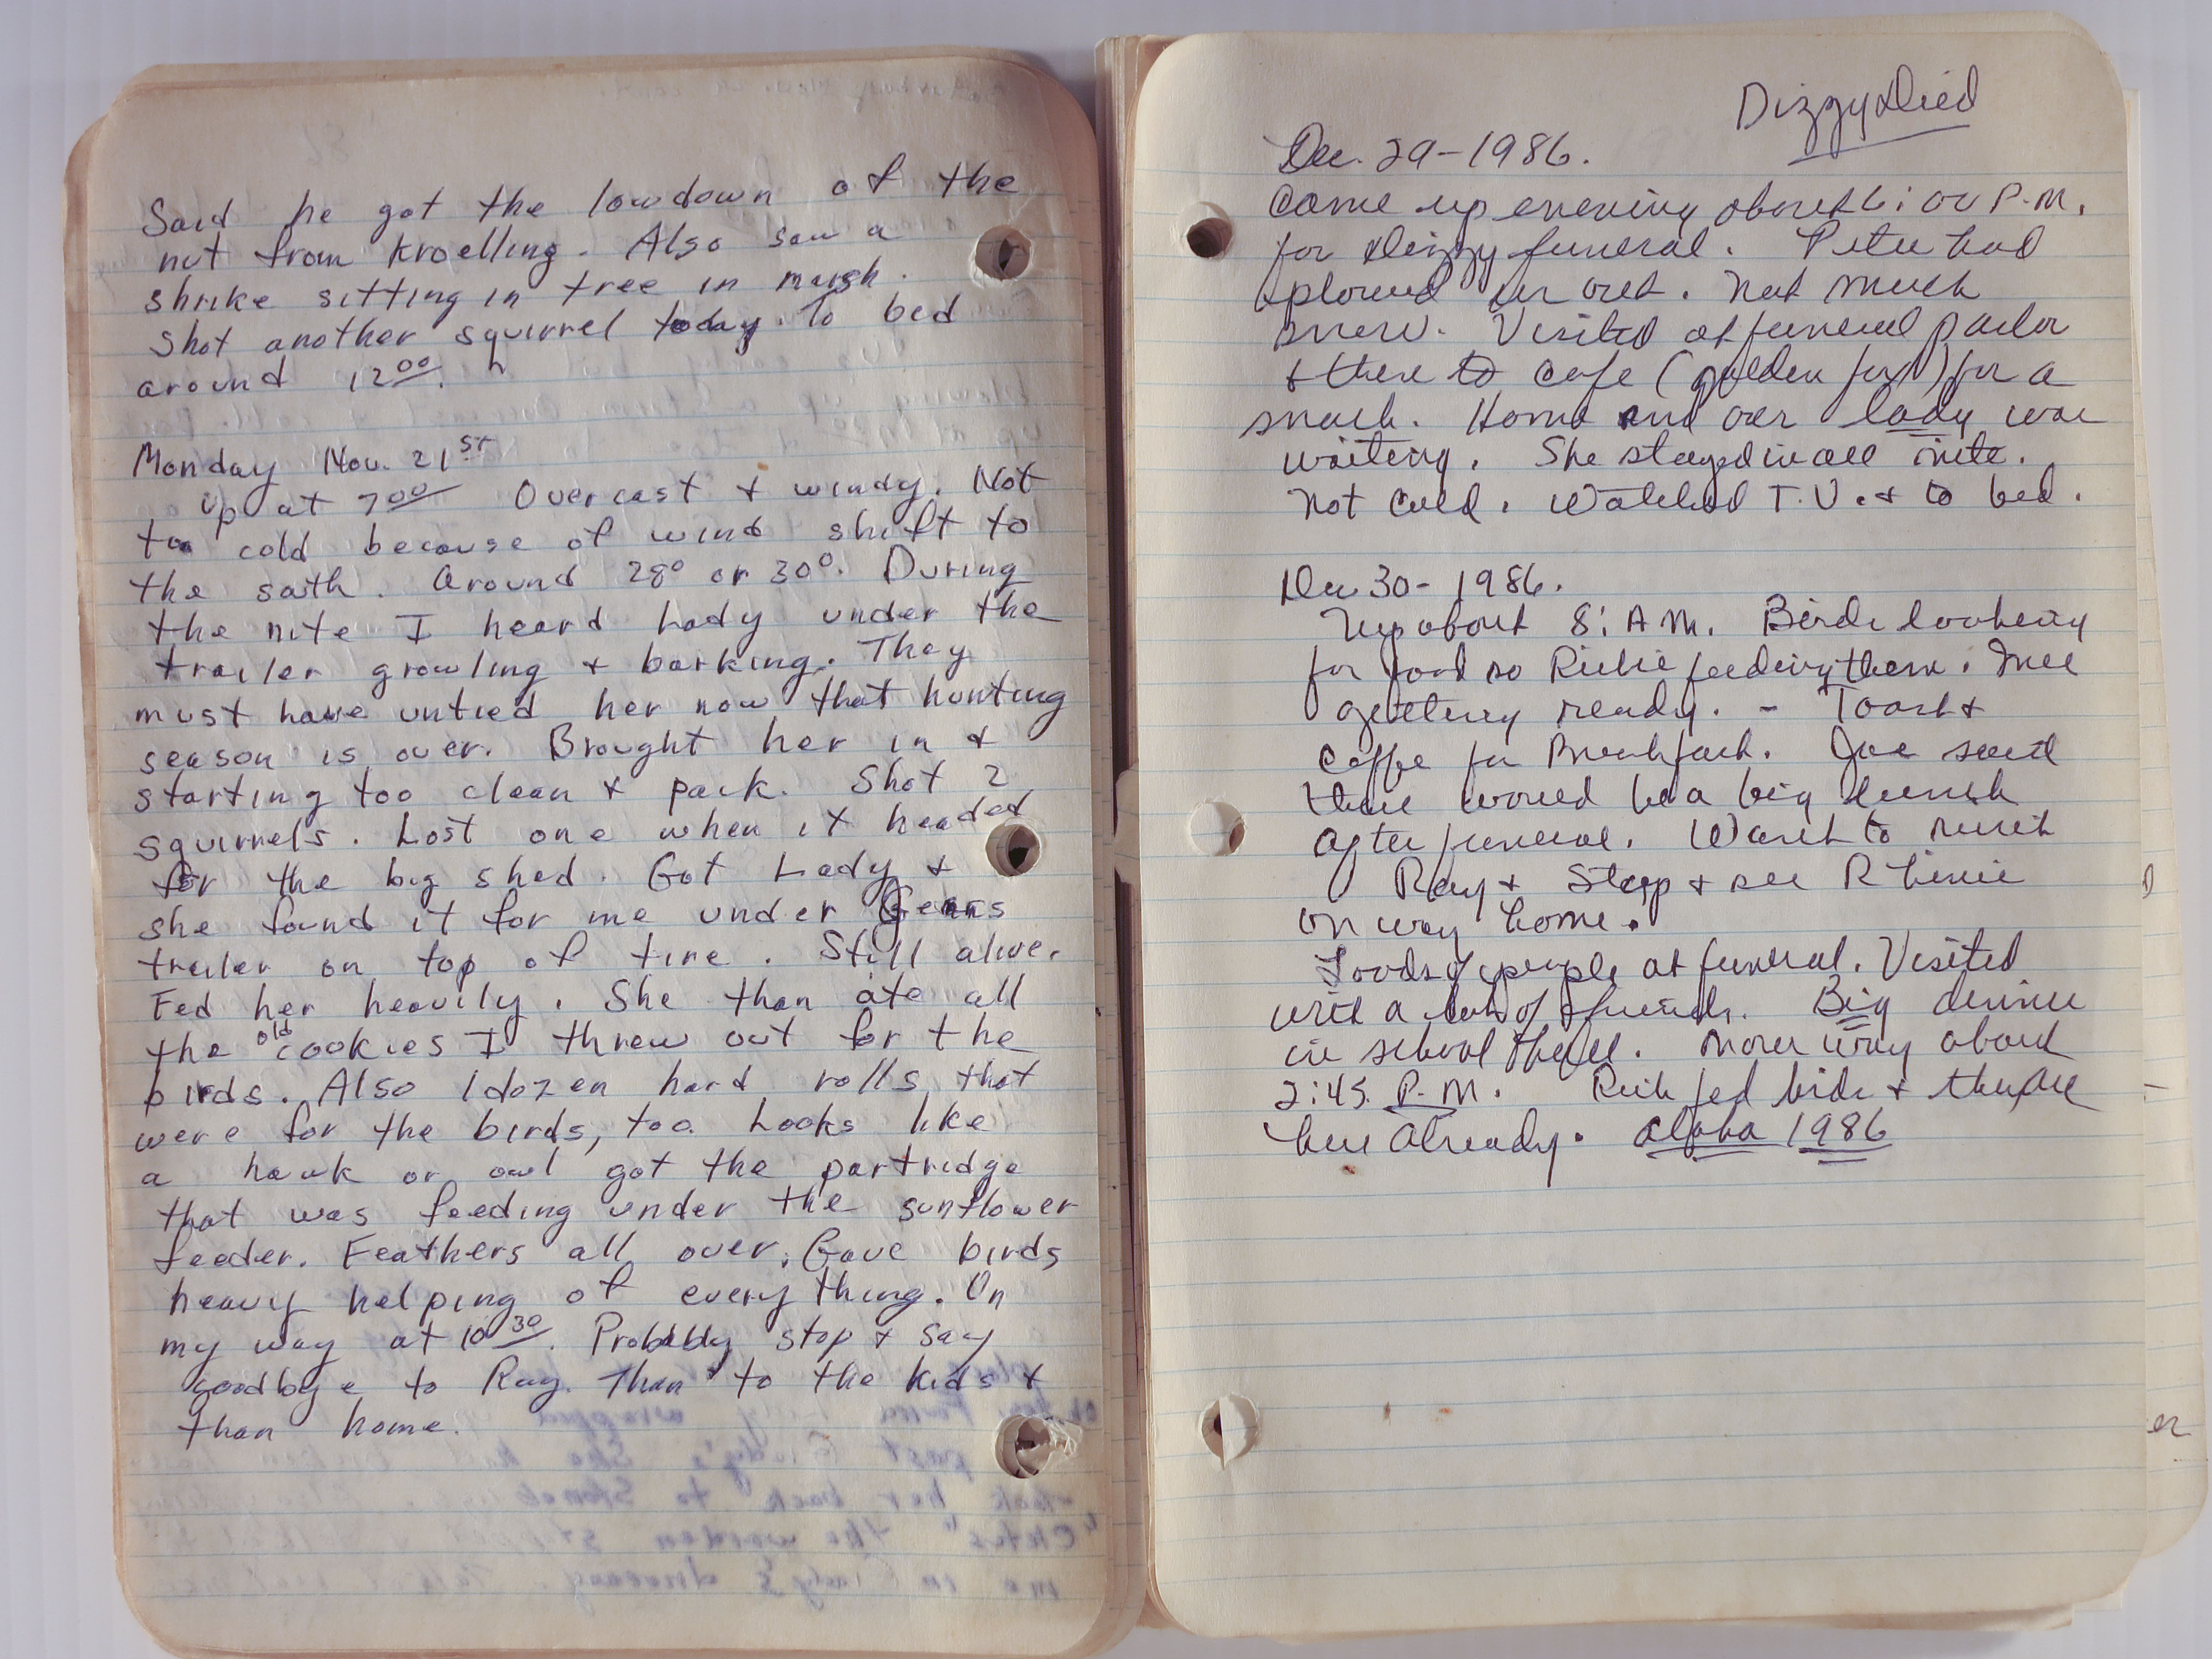 Said he got the lowdown of the
nut from Kroelling. Also saw a
shrike sitting in tree in marsh.
Shot another squirrel today. To bed
around 12⁰⁰.
Monday Nov. 21ˢᵗ
Up at 7⁰⁰ Overcast + windy. Not
too cold because of wind shift to
the south. Around 28° or 30°. During
the nite I heard Lady under the
trailer growling + barking. They
must have untied her now that hunting
season is over. Brought her in +
starting too clean + pack. Shot 2
squirrels. Lost one when it headed
for the big shed. Got Lady +
she found it for me under
trailer on top of tire. Still alive.
Fed her heavily. She than ate all
the old cookies I threw out for the
birds. Also 1 dozen hard rolls that
were for the birds, too. Looks like
a hawk or owl got the partridge
that was feeding under the sunflower
feeder. Feathers all over. Gave birds
heavy helping of everything. On
my way at 10³⁰. Probably stop + say
goodbye to Ray. Than to the kids +
than home.
Dizzy Died
Dec. 29-1986.
Came up evening about 6:00 P.M.
for Dizzy funeral. Pete had
plowed us out. Not much
snow. Visited at funeral parlor
+ then to cafe (golden fork) for a
snack. Home and our lady was
waiting. She stayed in all nite.
Not cold. Watched T.V. + to bed.
Dec 30-1986.
Up about 8: A M. Birds looking
for food so Richie feeding them.
getting ready. - Toast +
Coffe for Breakfast. Joe said
there would be a big lunch
after funeral. Want to
Ray + Stop + see
on way home.
Loads of people at funeral. Visited
with a lot of friends. Big dinner
in school Hall. On our way about
2:45. P.M. Rich fed birds + they are
here already. aloha 1986